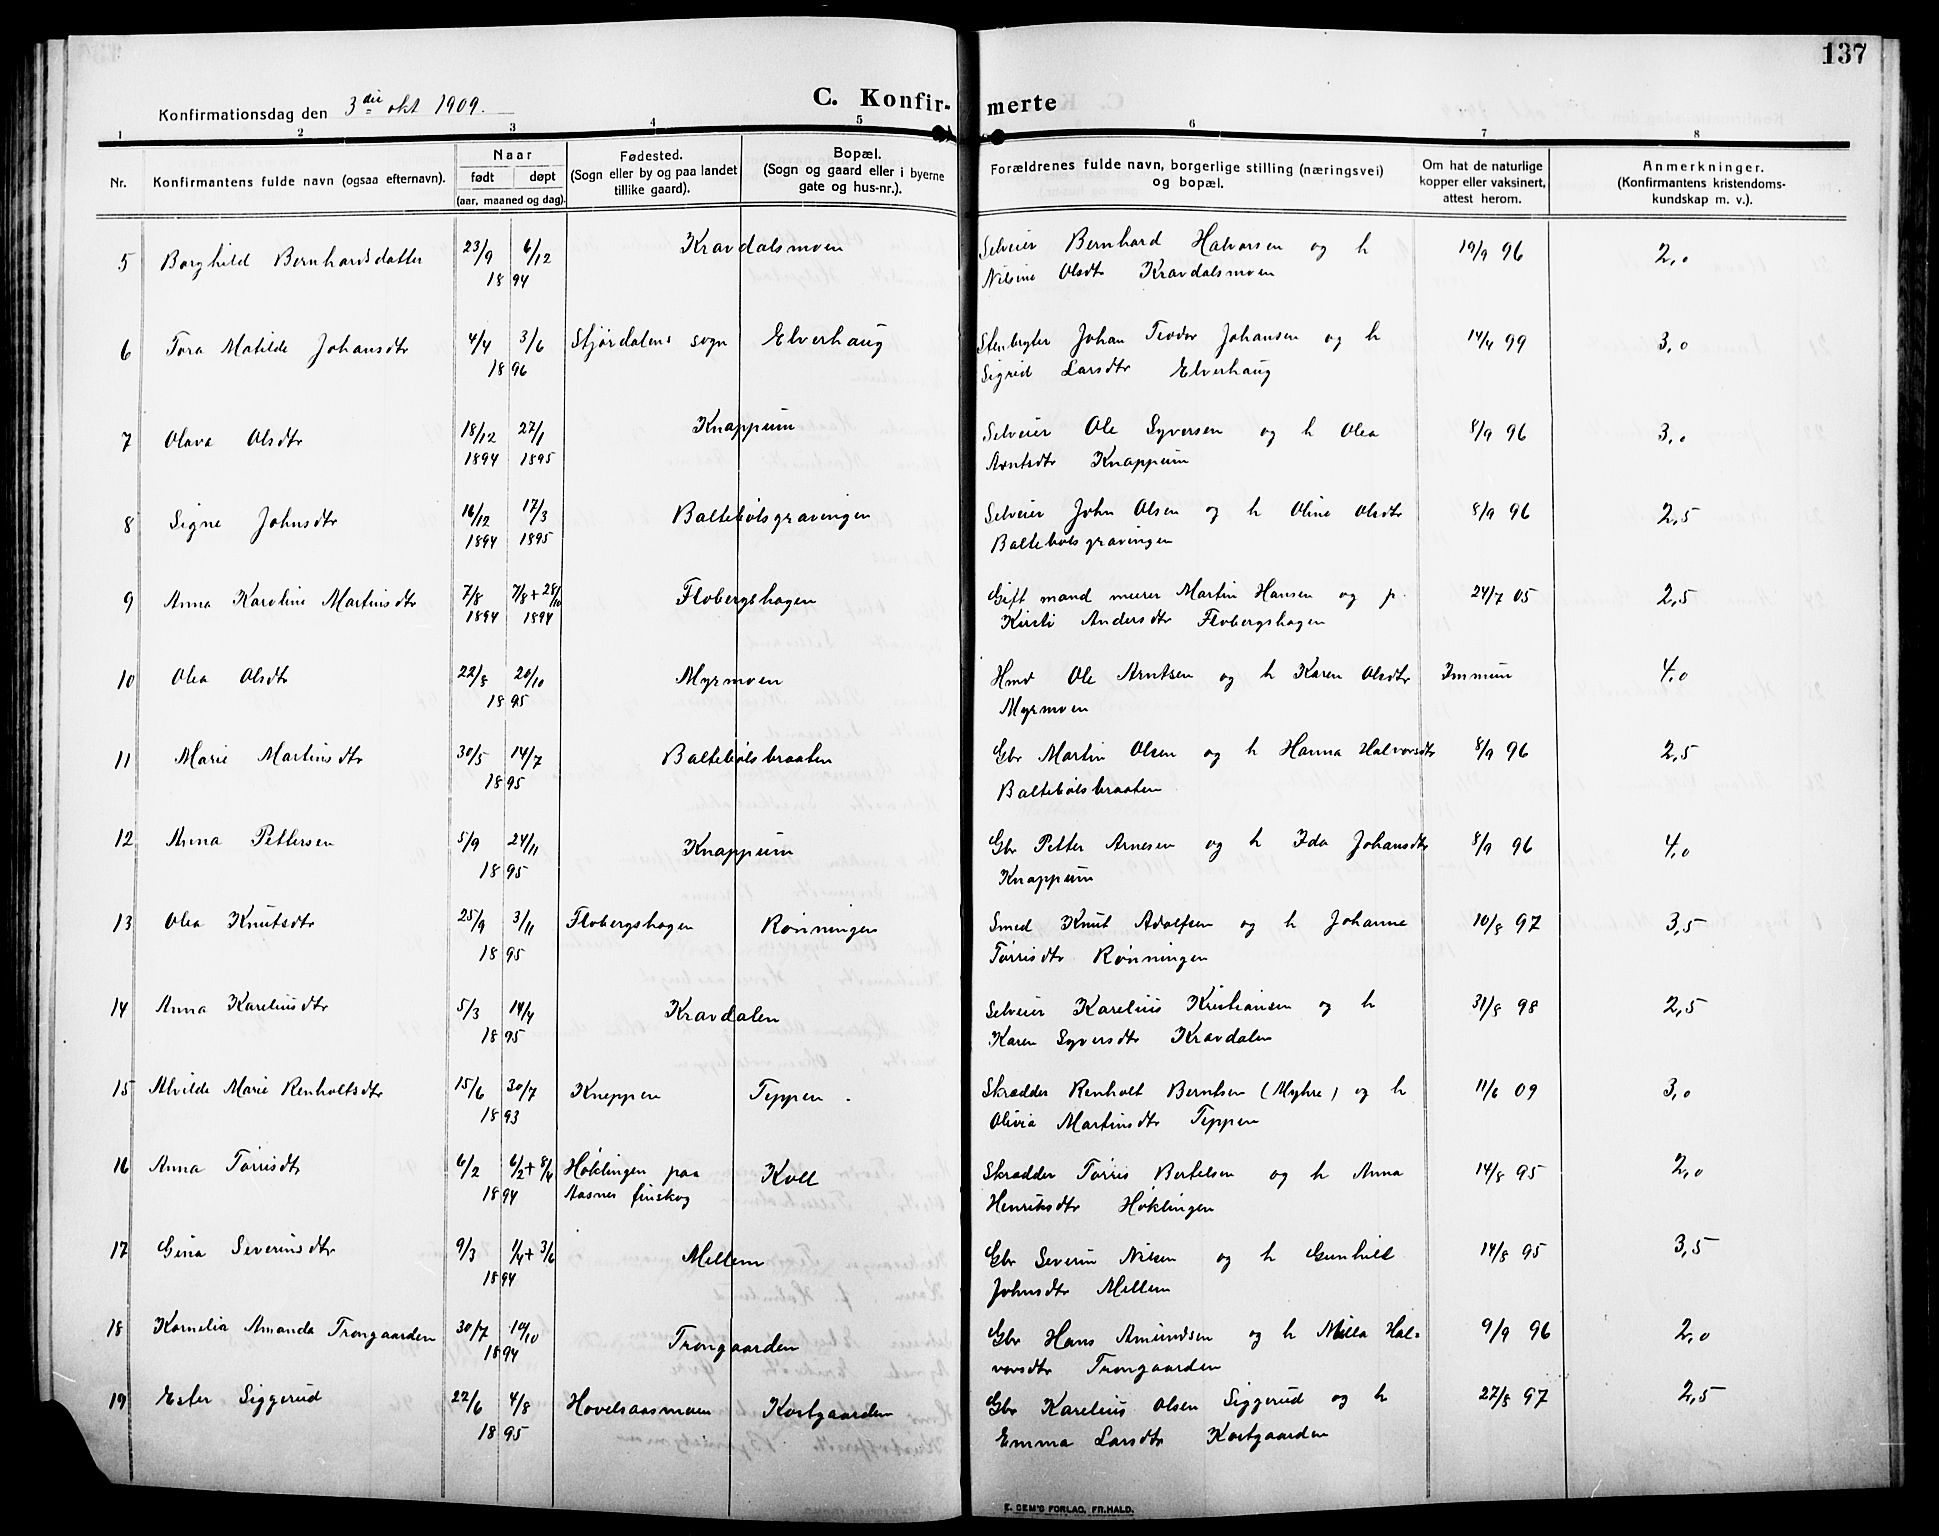 137
C. Konfirmerte
Konfirmationsdag den 3die okt 1909.
1 2 3 4 5 6 7 8
Nr.
Konfirmantens fulde navn (ogsaa efternavn).
Naar
født døpt
(aar, maaned og dag).
Fødested.
(Sogn eller by og paa landet
tillike gaard).
Bopæl.
(Sogn og gaard eller i byerne
gate og hus-nr.).
Forældrenes fulde navn, borgerlige stilling (næringsvei)
og bopæl.
Om hat de naturlige
kopper eller vaksinert,
attest herom.
Anmerkninger.
(Konfirmantens kristendoms-
kundskap m. v.).
5 Borghild Bernhardsdatter 23/9 6/12 Kravdalsmoen Selveier Bernhard Halvorsen og h 19/9 96 2,0
1894 Nilsine Olsdtr Kravdalsmoen
6 Tora Matilde Johansdtr 4/4 3/6 Stjørdalens sogn Elverhaug Stenbryter Johan Teodor Johansen og h 14/4 99 3,0
1896 Sigrid Larsdtr Elverhaug
7 Olava Olsdtr 18/12 27/1 Knappum Selveier Ole Syversen og h Olea 8/9 96 3,0
1894 1895 Arntsdtr Knappum
8 Signe Johnsdtr 16/12 17/3 Baltebølsgravingen Selveier John Olsen og h Oline Olsdtr 8/9 96 2,5
1894 1895 Baltebølsgravingen
9 Anna Karoline Martinsdtr 7/8 7/8 + 28/10 Flobergshagen Gift mand murer Martin Hansen og p. 24/7 05 2,5
1894 1894 Kirsti Andersdtr Flobergshagen
10 Olea Olsdtr 22/8 20/10 Myrmoen Hmd Ole Arntsen og h Karen Olsdtr Immun 4,0
1895 Myrmoen
11 Marie Martinsdtr 30/5 14/7 Baltebølsbraaten Gbr Martin Olsen og h Hanna Halvorsdtr 8/9 96 2,5
1895 Baltebølsbraaten
12 Anna Pettersen 5/9 24/11 Knappum Gbr Petter Arnesen og h Ida Johansdtr 8/9 96 4,0
1895 Knappum
13 Olea Knutsdtr 25/9 3/11 Flobergshagen Rønningen Smed Knut Adolfsen og h Johanne 10/8 97 3,5
1895 Tørrisdtr Rønningen
14 Anna Kareliusdtr 5/3 14/4 Kravdalen Selveier Karelius Kristiansen og h 31/8 98 2,5
1895 Karen Syversdtr Kravdalen
15 Alvilde Marie Renholtsdtr 15/6 30/7 Kneppen Teppen. Skrædder Renholt Berntsen (Myhre) og h 11/6 09 3,0
1893 Olivia Martinsdtr Teppen
16 Anna Tørrisdtr 6/2 6/2 + 8/4 Høklingen paa Koll Skrædder Tørris Bertelsen og h Anna 14/8 95 2,0
1894 Aasnes finskog Henriksdtr Høklingen
17 Gina Severinsdtr 9/3 1/4 + 3/6 Mellem Gbr Severin Nilsen og h Gunhild 14/8 95 3,5
1894 Johnsdtr Mellem
18 Kornelia Amanda Trongaarden 30/7 10/10 Trongaarden Gbr Hans Amundsen og h Milla Hal- 9/9 96 2,0
1894 vorsdtr Trongaarden
19 Ester Siggerud 22/6 4/8 Hovelsaasmoen Kortgaarden Gbr Karelius Olsen Siggerud og h 27/8 97 2,5
1895 Emma Larsdtr Kortgaarden
E. SEM'S FORLAG, FR.HALD.